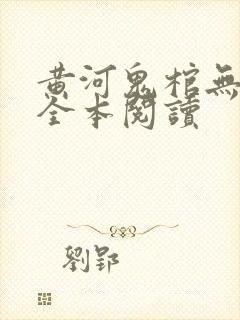 黃河鬼棺無
全本閱讀
劉郢